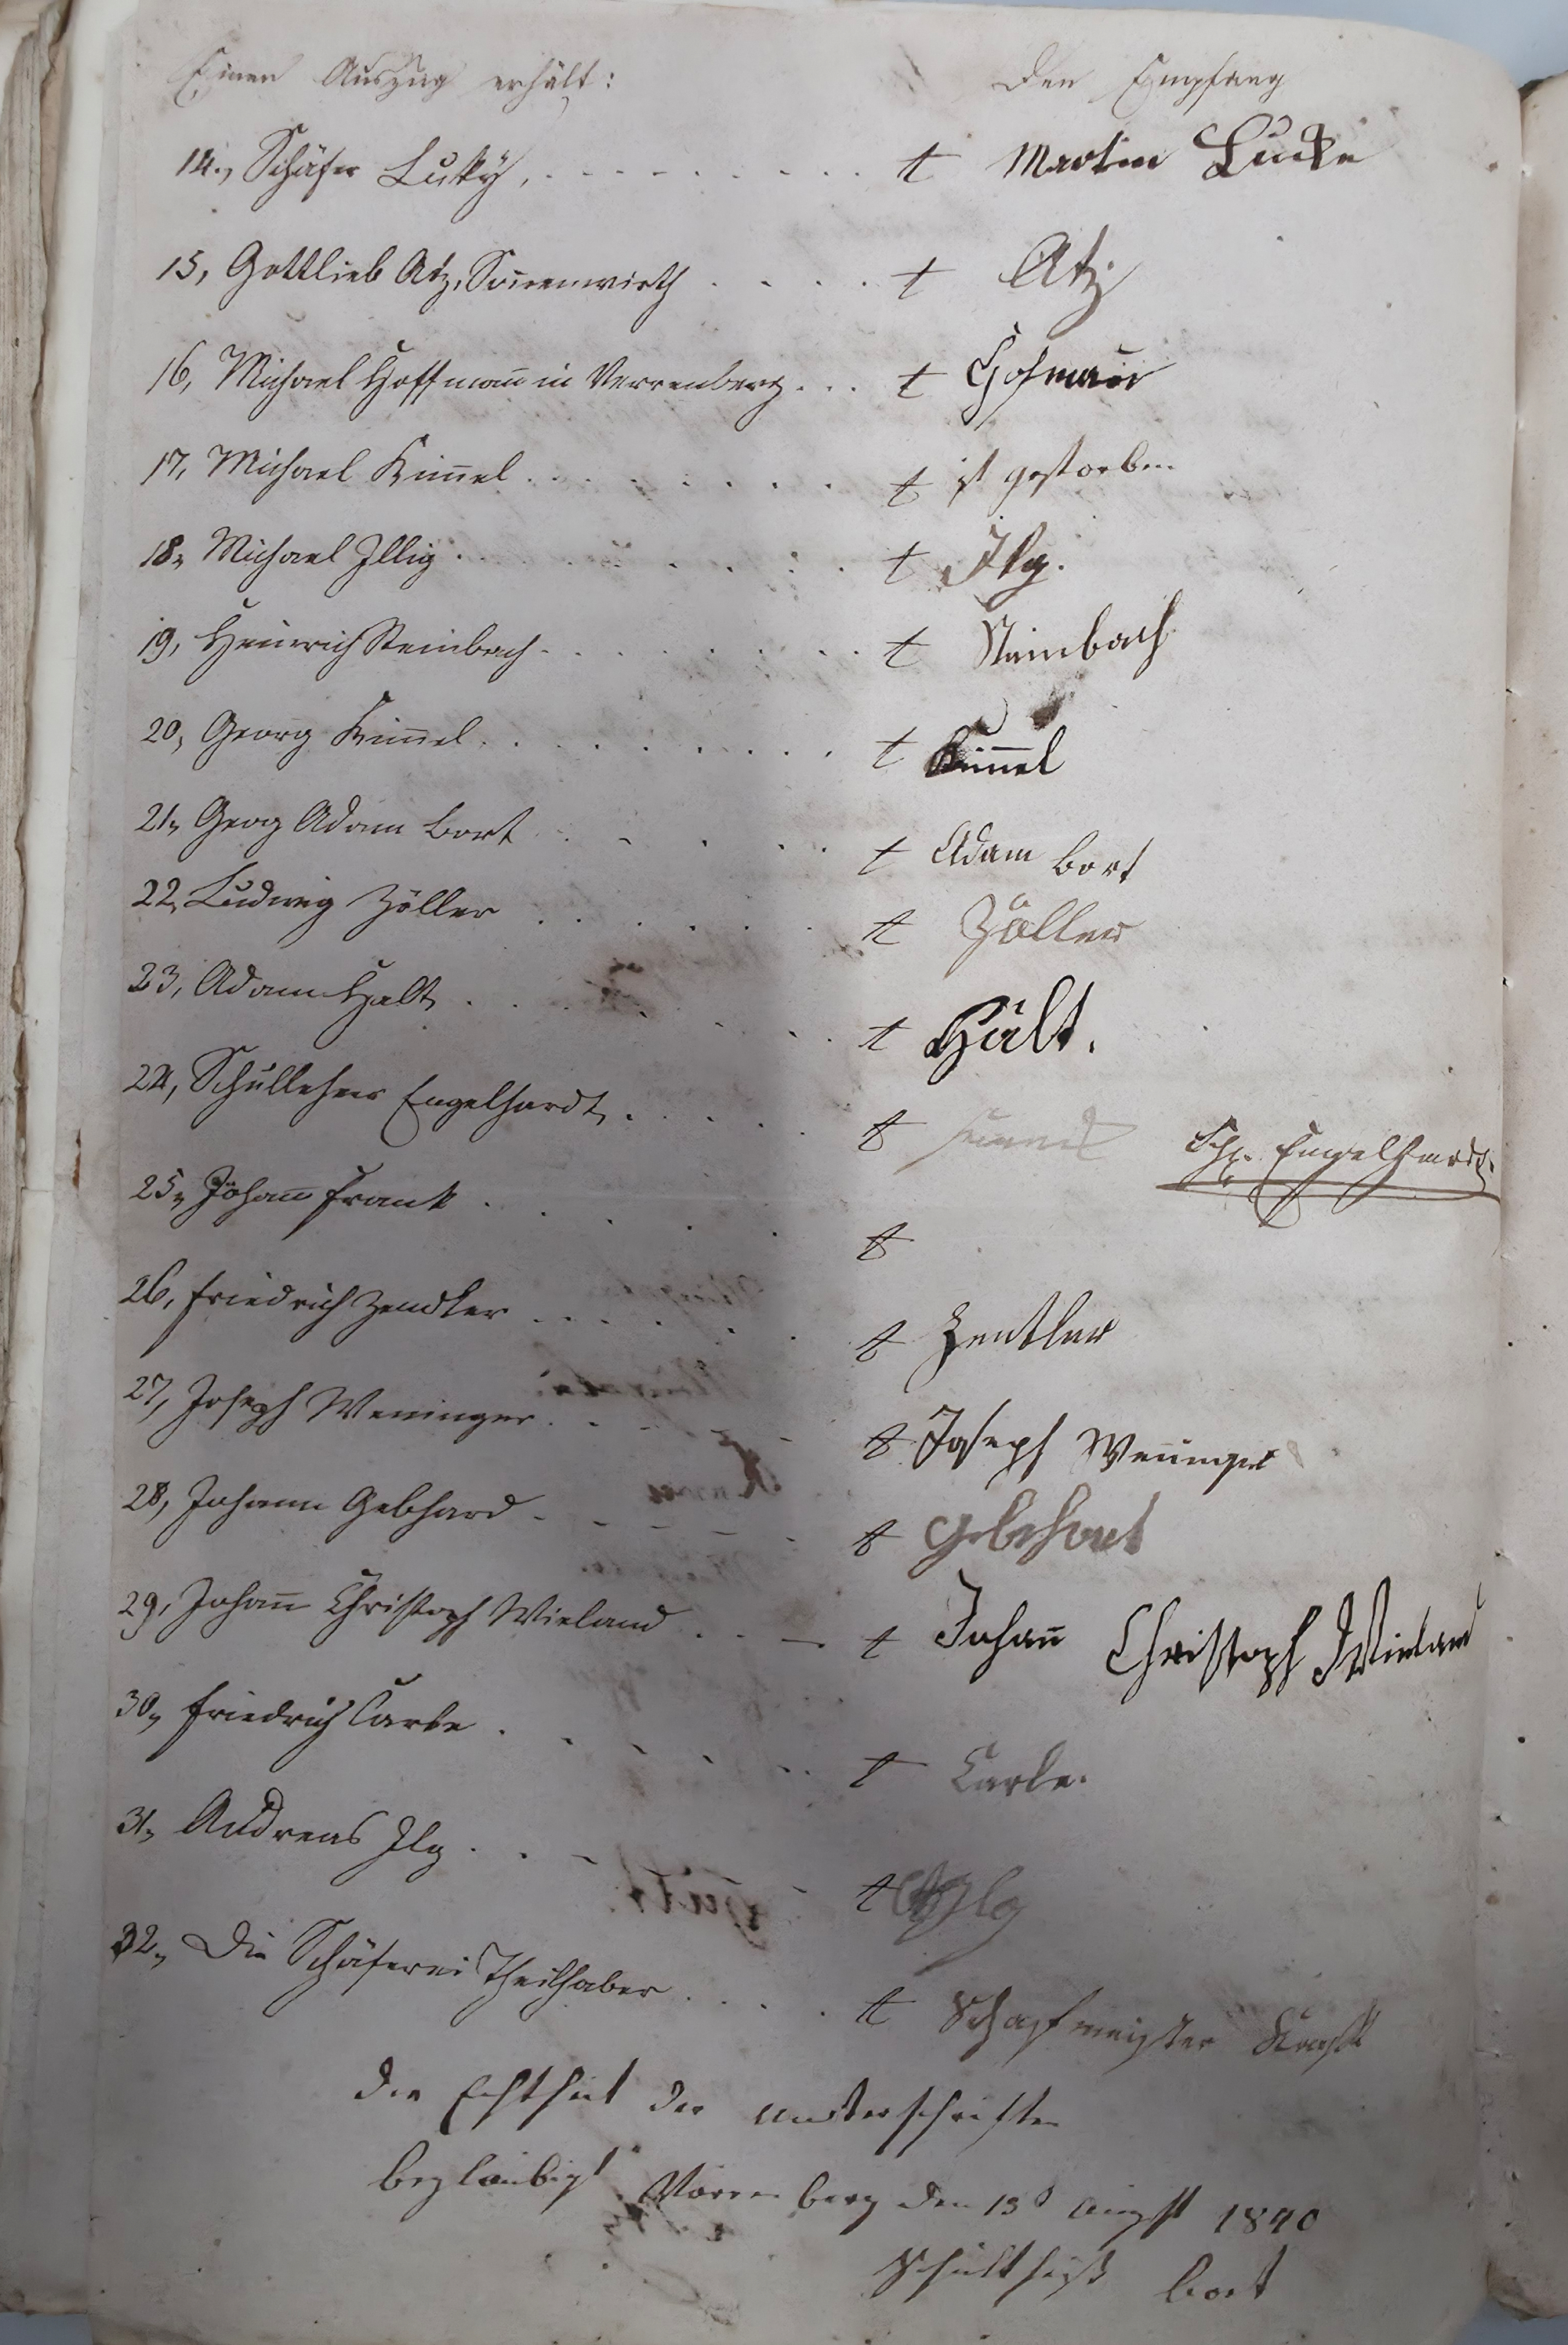 Einen Auszug erhält: Den Empfang
14., Schäfer Luky, . . . . . . . . . t Martin Lucke
15, Gottlieb Atz, Sonnenwirth . . . . t Atz
16, Michael Hoffmann̄ in Verrenberg . . . t Hofman̄
17, Michael Kim̄el . . . . . . . t ist gestorben
18, Michael Illig . . . . . . . t Ilg.
19, Heinrich Steinbach . . . . . . . t Steinbach
20, Georg Kim̄el . . . . . . . . t Kim̄el
21, Georg Adam Bort . . . . . t Adam Bort
22, Ludwig Zöller . . . . . t Zöller
23, Adam Halt . . . . . . t Hält.
24, Schullehrer Engelhardt . . . . t Engelhardt.
25, Johan̄ Frank . . . . . t
26, Friedrich Zendler . . . . . . t Zentler
27, Joseph Weninger . . . . . t Joseph Wen̄inger
28, Johann Gebhard . . . . . t Gebehart
29, Johan̄ Christoph Wieland . . . t Johan̄ Christoph Wieland
30, Friedrich Carle . . . . . . t Carle.
31, Andreas Ilg . . . . t Ilg
32, Die Schäferei Theilhaber . . . . t Schafmeister Kraft
die Echtheit der Unterschriften
beglaubigt Verrenberg den 13t August 1840
Schultheiß Bort